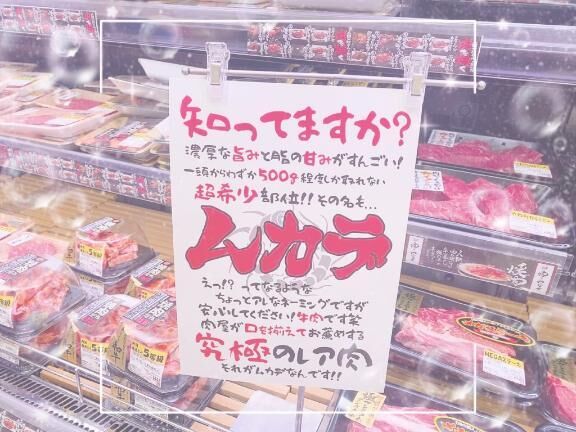 知ってますか?
濃厚な旨みと脂の甘みがすんごい!
一頭からわずか500g程度しか取れない
超希少部位!!その名も...
ムカデ
えっ!?ってなるような
ちょっとアレなネーミングですが
安心してください!牛肉です笑
肉屋が口を揃えてお薦めする
究極のレア肉
それがムカデなんです!!
MEGAステーキ